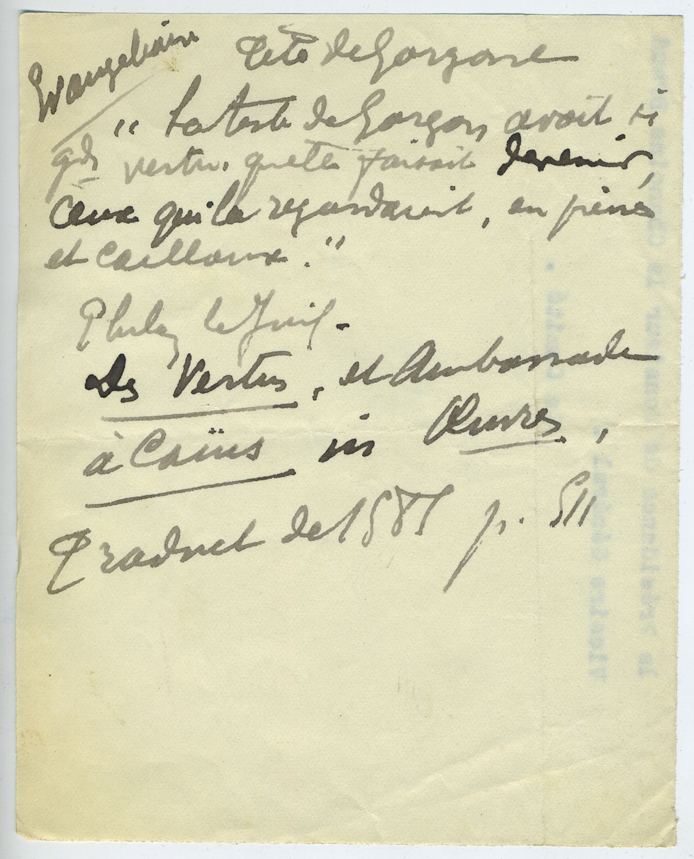 Tête de Gorgone
"La teste de Gorgon avoit si
gde vertu, qu'elle faisait devenir,
ceux qui la regardaient, en pierres
et cailloux."
Philon le Juif.
Des Vertus, et Ambassade
à Caïus in Œuvres,
Traduct de p. 511